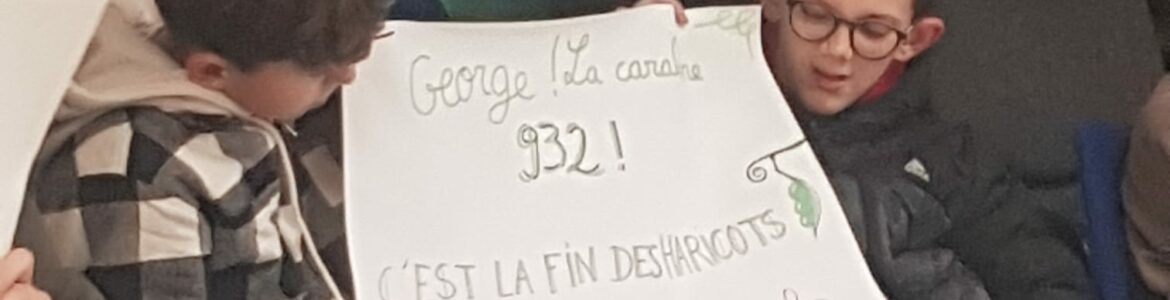 George ! La carabre
932 !
C'EST LA FIN DES HARICOTS